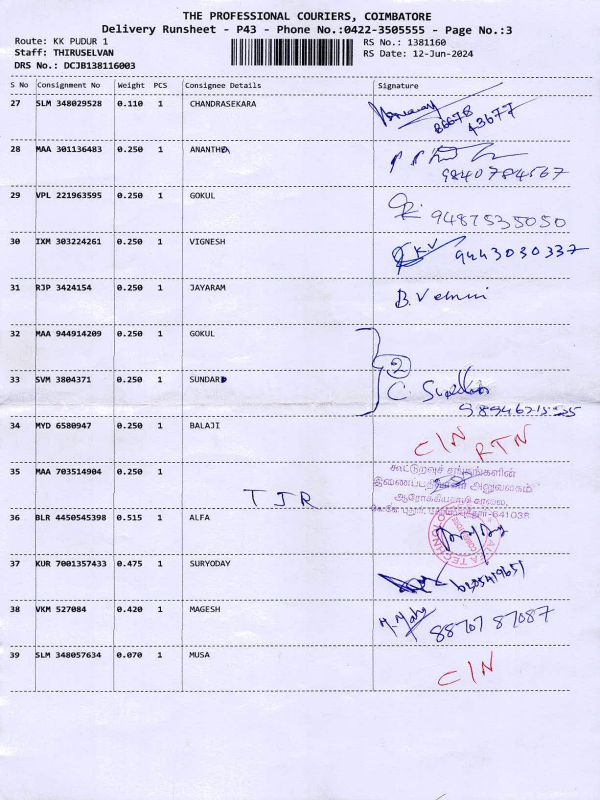 THE PROFESSIONAL COURIERS, COIMBATORE
Delivery Runsheet - P43 - Phone No.:0422-3505555 - Page No.:3
Route: KK PUDUR 1 RS No.: 1381160
Staff: THIRUSELVAN RS Date: 12-Jun-2024
DRS No.: DCJB138116003
S No Consignment No Weight PCS Consignee Details Signature
27 SLM 348029528 0.110 1 CHANDRASEKARA
86678
43677
28 MAA 301136483 0.250 1 ANANTHA
9840784567
29 VPL 221963595 0.250 1 GOKUL
9487535050
30 IXM 303224261 0.250 1 VIGNESH K.V 9443030337
31 RJP 3424154 0.250 1 JAYARAM B.
32 MAA 944914209 0.250 1 GOKUL
2
33 SVM 3804371 0.250 1 SUNDAR C.
34 MYD 6580947 0.250 1 BALAJI C/N RTN
35 MAA 703514904 0.250 1 கூட்டுறவுச் சங்கங்களின்
அலுவலகம்
TJR
சாலை,
641038
36 BLR 4450545398 0.515 1 ALFA
37 KUR 7001357433 0.475 1 SURYODAY
38 VKM 527084 0.420 1 MAGESH 88707 87087
39 SLM 348057634 0.070 1 MUSA C/N